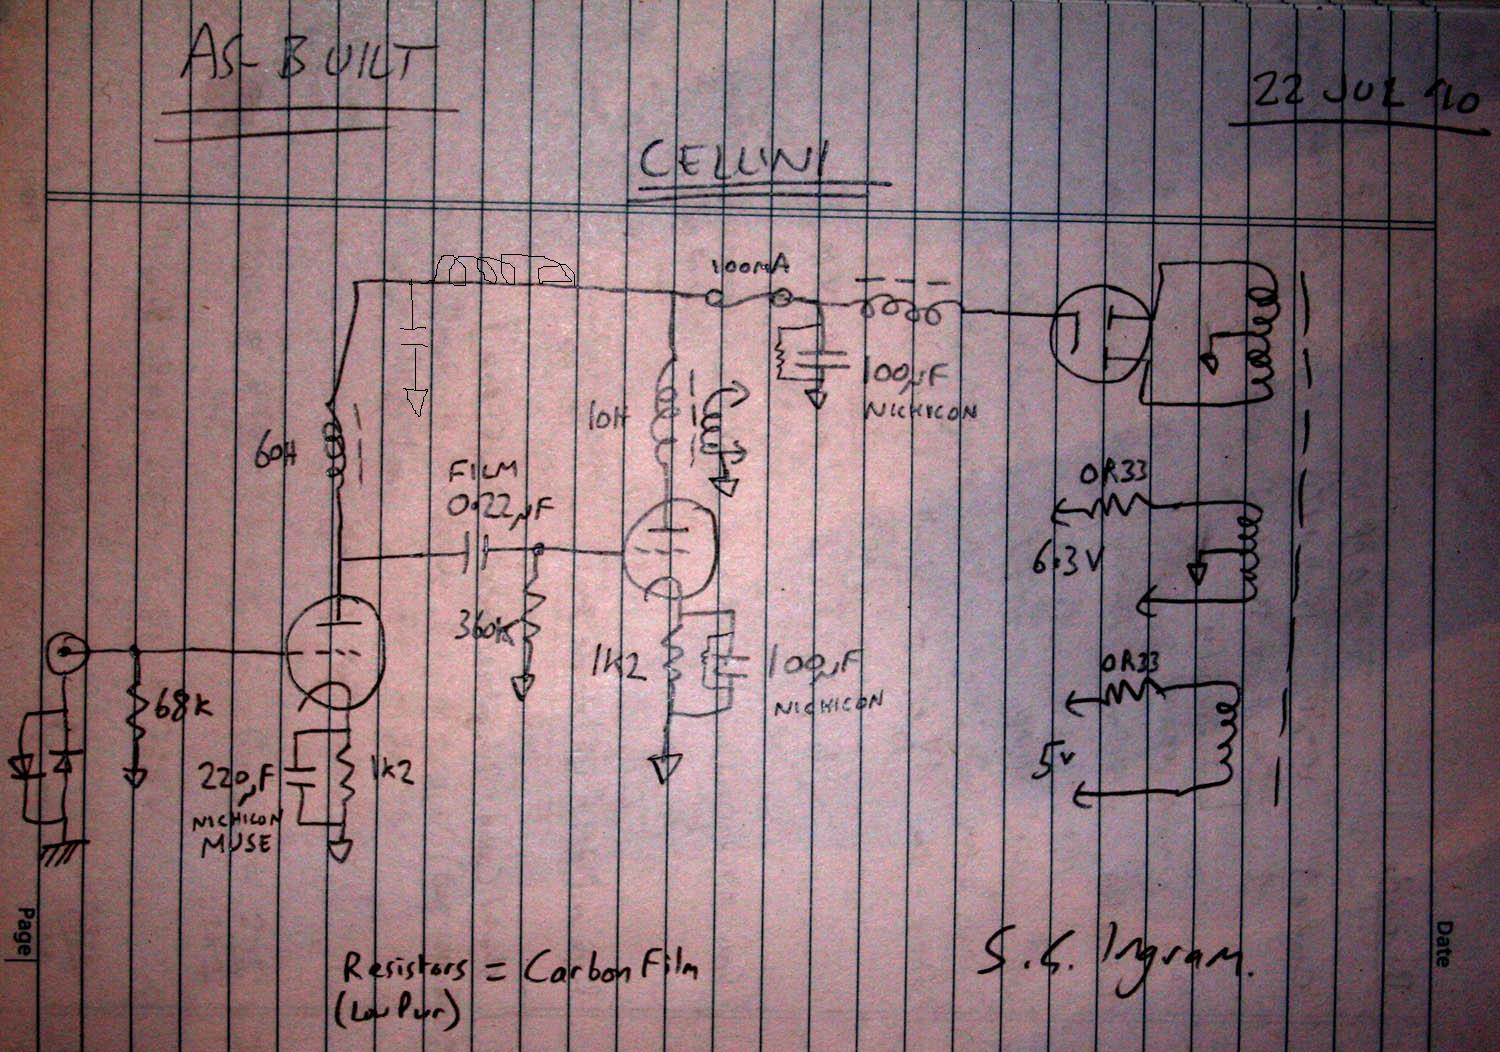 AS-BUILT
22 JUL '10
CELLINI
100mA
100µF
NICHICON
10H
60H
FILM
0.22µF
0R33
6.3V
360K
1K2
100µF
NICHICON
0R33
5V
68K
220µF
NICHICON
MUSE
1K2
Resistors = Carbon Film
(Low Pwr)
S.G. Ingram.
Page
Date